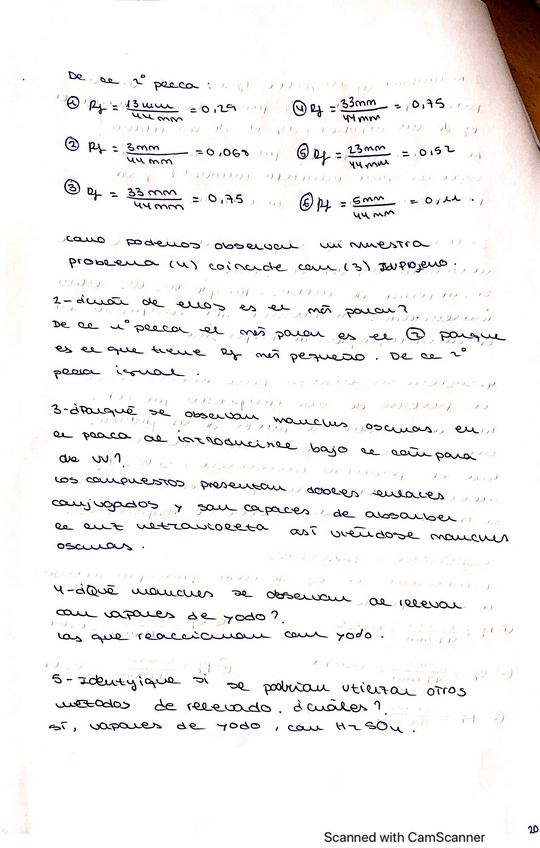 De la 2º placa:
① Rf = 13mm / 44mm = 0,29 ④ Rf = 33mm / 44mm = 0,75
② Rf = 3mm / 44mm = 0,068 ⑤ Rf = 23mm / 44mm = 0,52
③ Rf = 33mm / 44mm = 0,75 ⑥ Rf = 5mm / 44mm = 0,11.
como podemos observar mi muestra
problema (4) coincide con (3) Ibuprofeno.
2- ¿Cuál de ellos es el más polar?
De la 1º placa el más polar es el ② porque
es el que tiene Rf más pequeño. De la 2º
placa igual.
3- ¿Porqué se observan manchas oscuras en
la placa al introducirse bajo la lámpara
de UV?
Los compuestos presentan dobles enlaces
conjugados y son capaces de absorber
la luz ultravioleta así viéndose manchas
oscuras.
4- ¿Qué manchas se observan al revelar
con vapores de yodo?
Las que reaccionan con yodo.
5- Identifique si se podrían utilizar otros
métodos de revelado. ¿Cuáles?
Sí, vapores de yodo, con H2SO4.
20
Scanned with CamScanner